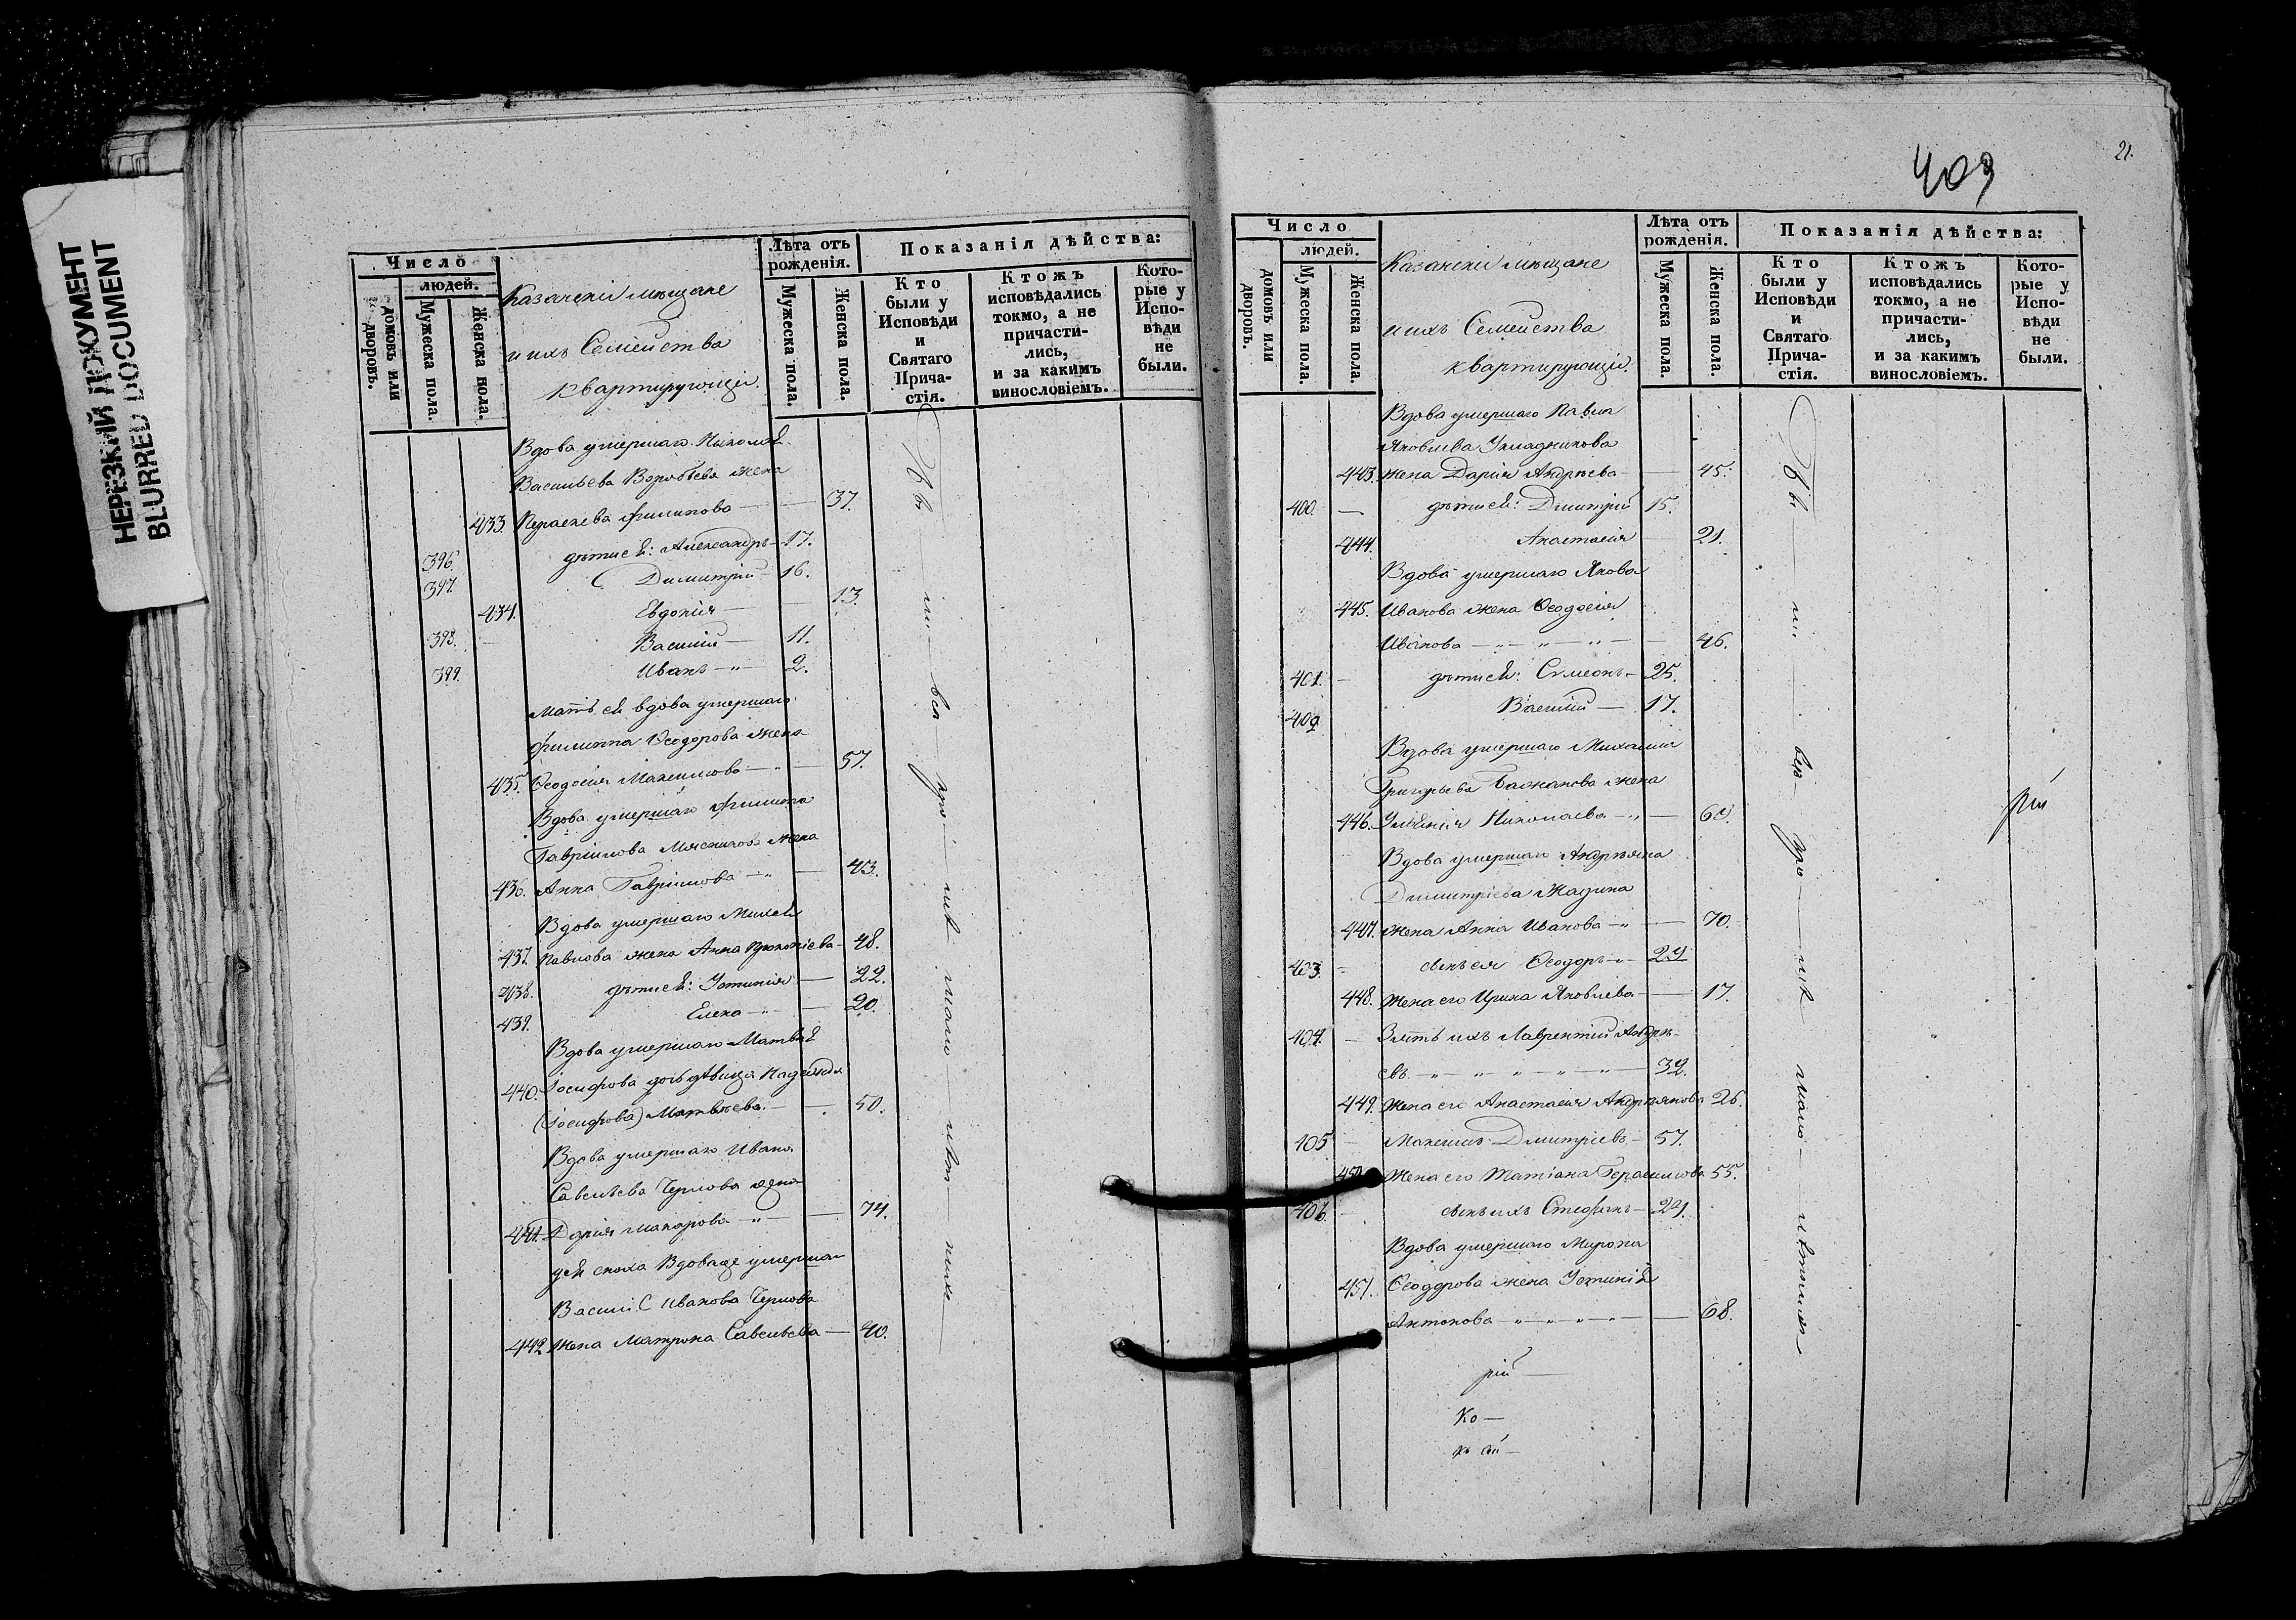 НЕРЕЗКИЙ ДОКУМЕНТ
BLURRED DOCUMENT
Число
людей.
домовъ или дворовъ.
Мужеска пола.
Женска пола.
Казанскіи мѣщане
и ихъ Семейства
квартирующіи.
Лѣта отъ рожденія.
Мужеска пола.
Женска пола.
Показанія дѣйства:
Кто были у Исповѣди и Святаго Прича-стія.
Ктожъ исповѣдались токмо, а не причасти-лись, и за какимъ винословіемъ.
Кото-рые у Испо-вѣди не были.
Вдова умершаго Николая
Васильева Воробьева жена
433. Параскева Филипова — — 37.
396. дѣти ея: Александръ — 17.
397. Димитрій — 16.
434. Евдокія — — 13.
398. — Василій — 11.
399. Иванъ — „ — 2.
Мать ея вдова умершаго
Филиппа Ѳеодорова жена
435. Ѳеодосія Максимова — „ — 57.
Вдова умершаго Филиппа
Гавріилова Мясникова жена
436. Анна Гавріилова — „ — 43.
Вдова умершаго Михея
437. Павлова жена Анна Прокопіева — 48.
438. дѣти ея: Устинія — 22.
439. Елена — „ — 20.
Вдова умершаго Матвѣя
440. Іосифова дочь дѣвица Надежда
(Іосифова) Матвѣева. — — 50.
Вдова умершаго Ивана
Савельева Чернова жена
441. Дарія Макарова — „ — 74.
у ей сноха Вдова же умершаго
Василія Иванова Чернова
442. Жена Матрона Савельева — 40.
409
21.
Число
людей.
домовъ или дворовъ.
Мужеска пола.
Женска пола.
Казанскіи мѣщане
и ихъ Семейства
квартирующіи.
Лѣта отъ рожденія.
Мужеска пола.
Женска пола.
Показанія дѣйства:
Кто были у Исповѣди и Святаго Прича-стія.
Ктожъ исповѣдались токмо, а не причасти-лись, и за какимъ винословіемъ.
Кото-рые у Испо-вѣди не были.
Вдова умершаго Павла
Яковлева Укладникова
443. жена Дарія Андрѣева — — 45.
400. — дѣти ея: Дмитрій 15.
444. Анастасія — 21.
Вдова умершаго Якова
445. Иванова жена Ѳеодосія
Иванова — „ — „ — „ — — 46.
401. — дѣти ея: Симеонъ — 25.
402 Василій — 17.
Вдова умершаго Михаила
Григорьева Бажанова жена
446. Николаева — „ — 60.
Вдова умершаго Андрѣяна
Димитріева
447. жена Анна Иванова — „ — 70.
403. — сынъ ея Ѳеодоръ — „ — 29
448. Жена его Ирина Яковлева — — 17.
404. — Зять ихъ Лаврентій Андрѣ-
евъ — „ — „ — „ — „ — „ — 32.
449. Жена его Анастасія Андрѣянова 26.
405 — Максимъ Дмитріевъ — 57.
450 Жена его Татіана Герасимова 55.
406. — сынъ ихъ Стефанъ — 24.
Вдова умершаго Мирона
451. Ѳеодорова жена Устинія
Антонова — „ — „ — „ — „ — — 68.
рій —
Ко —